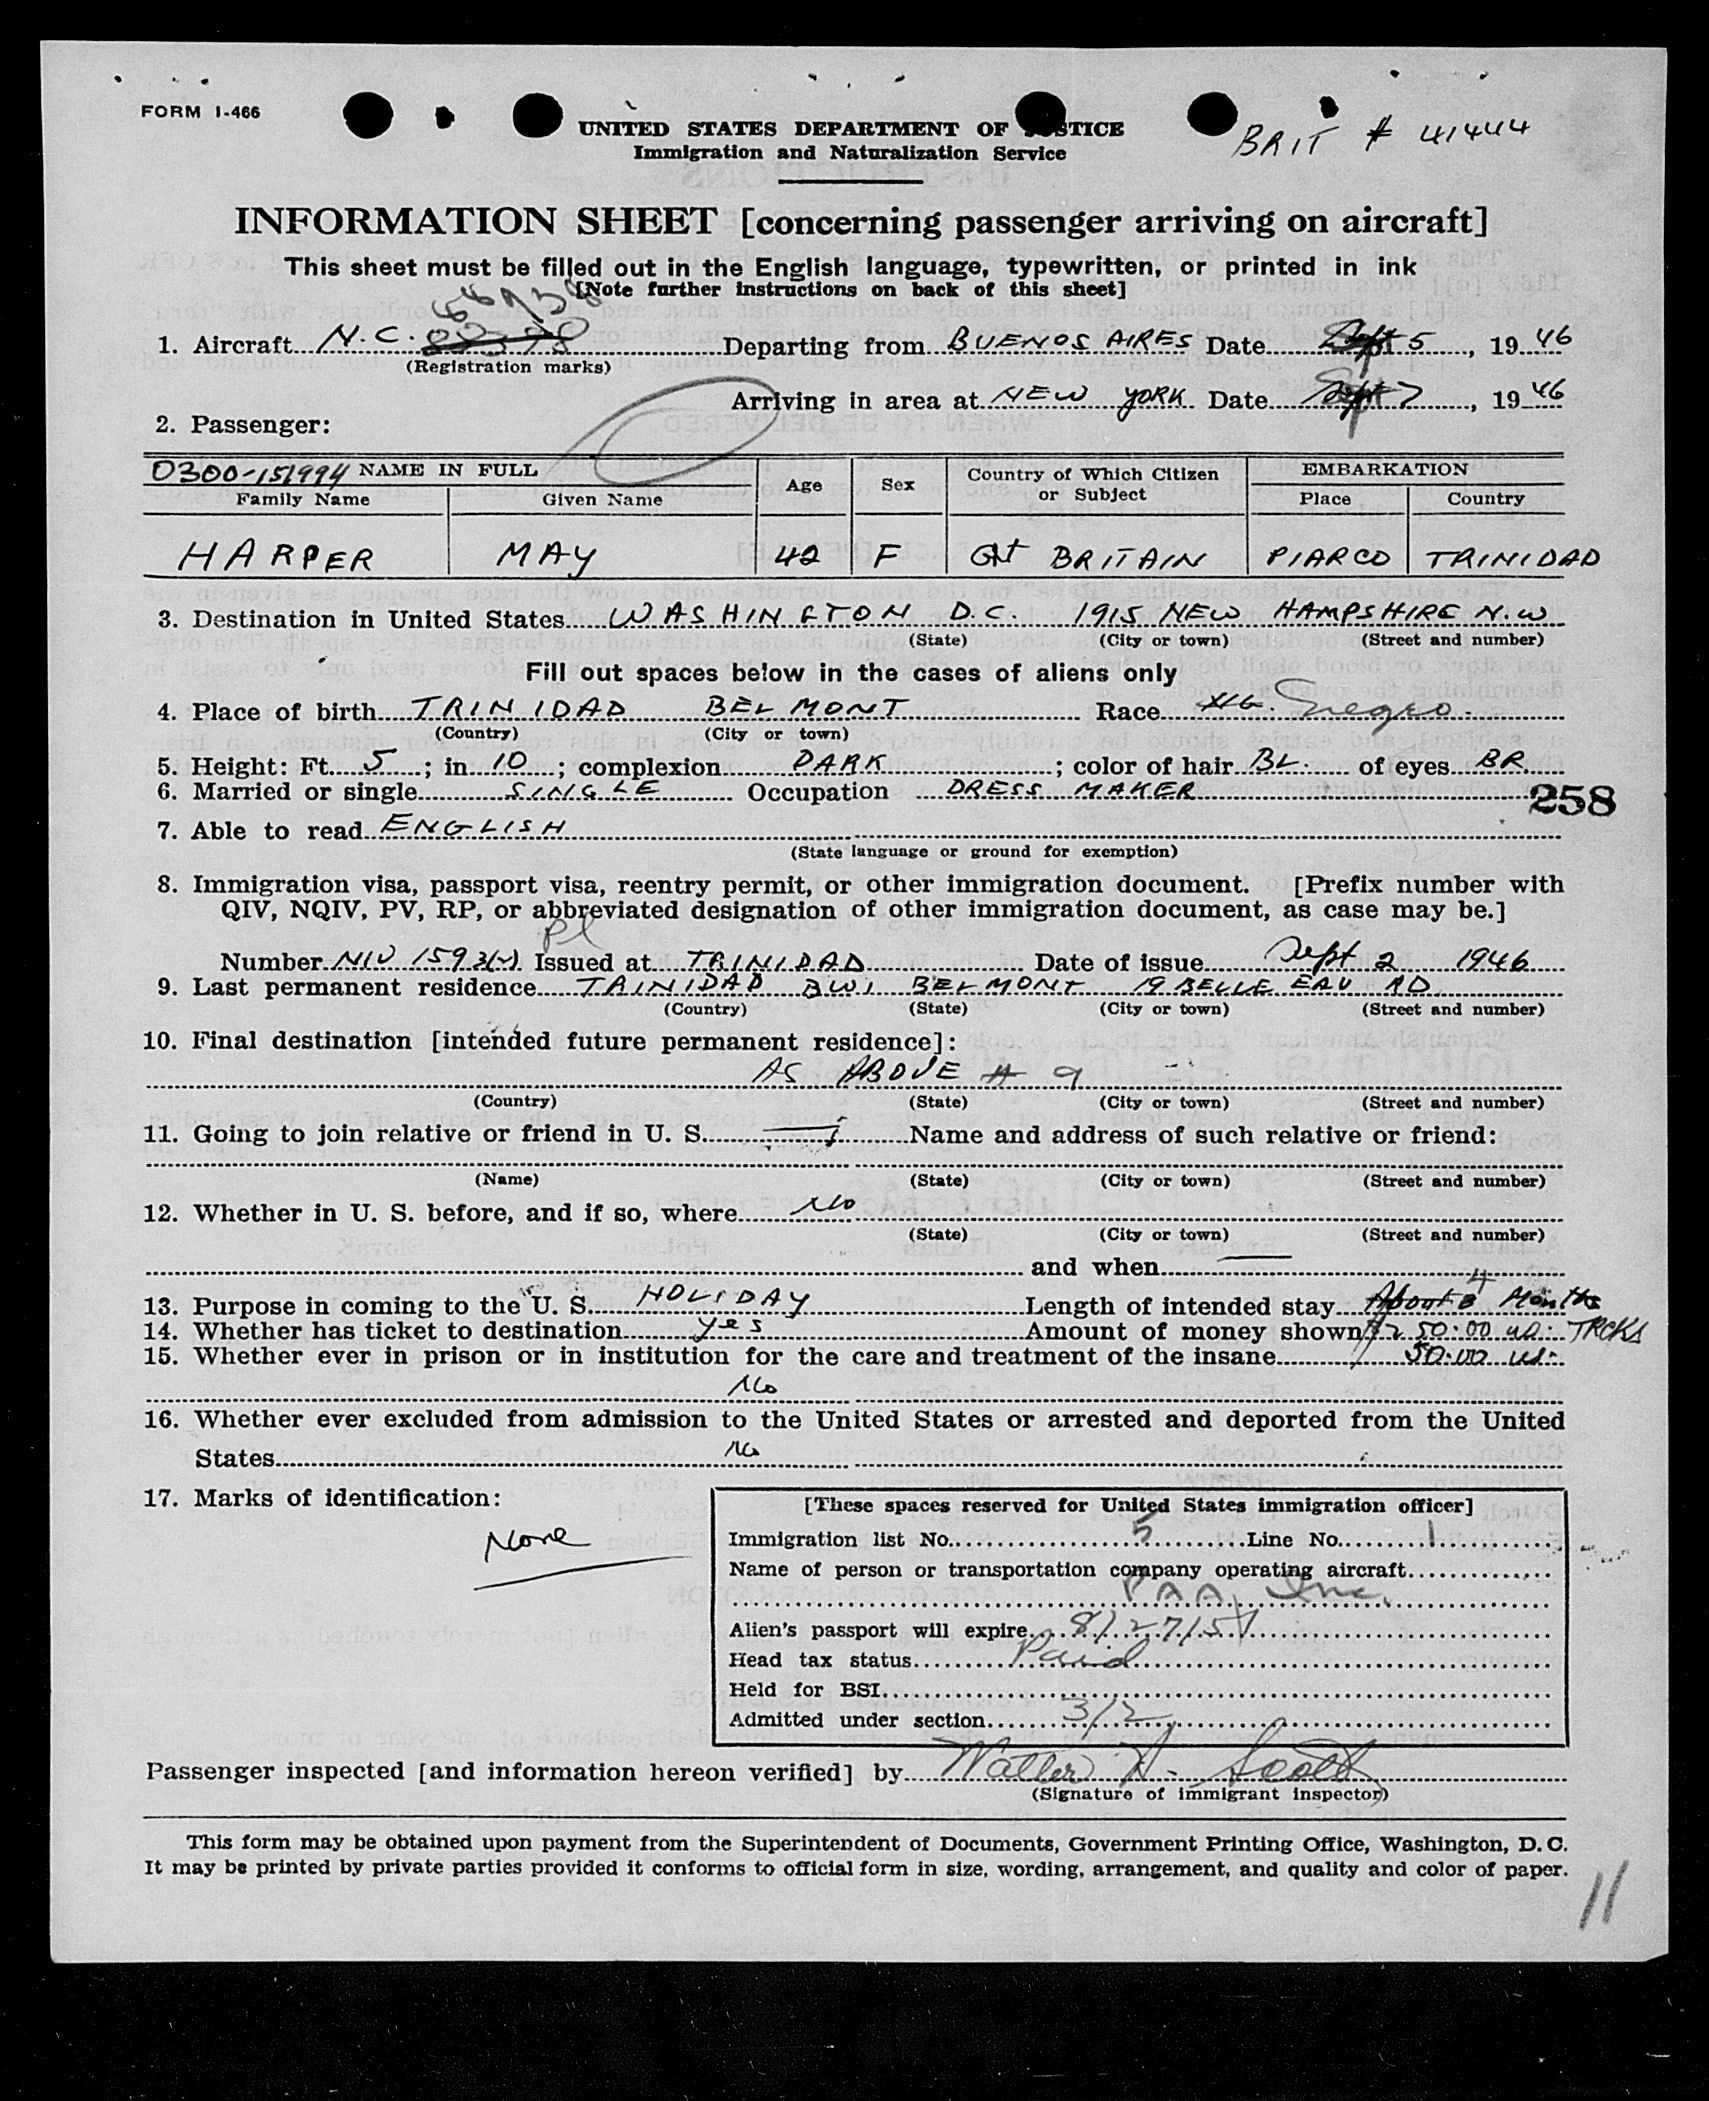 FORM I-466
UNITED STATES DEPARTMENT OF JUSTICE
BRIT # 41444
Immigration and Naturalization Service
INFORMATION SHEET [concerning passenger arriving on aircraft]
This sheet must be filled out in the English language, typewritten, or printed in ink
[Note further instructions on back of this sheet]
1. Aircraft N.C. Departing from BUENOS AIRES Date Sept 5, 1946
(Registration marks)
Arriving in area at NEW YORK Date Sept 7, 1946
2. Passenger:
0300-151994 NAME IN FULL Age Sex Country of Which Citizen or Subject EMBARKATION
Family Name Given Name Place Country
HARPER MAY 42 F Gt BRITAIN PIARCO TRINIDAD
3. Destination in United States WASHINGTON D.C. 1915 NEW HAMPSHIRE N.W
(State) (City or town) (Street and number)
Fill out spaces below in the cases of aliens only
4. Place of birth TRINIDAD BELMONT Race negro
(Country) (City or town)
5. Height: Ft. 5; in. 10; complexion DARK; color of hair BL. of eyes BR.
6. Married or single SINGLE Occupation DRESS MAKER
258
7. Able to read ENGLISH
(State language or ground for exemption)
8. Immigration visa, passport visa, reentry permit, or other immigration document. [Prefix number with
QIV, NQIV, PV, RP, or abbreviated designation of other immigration document, as case may be.]
Number NIV 1593 Issued at TRINIDAD Date of issue Sept 2 1946
9. Last permanent residence TRINIDAD BWI BELMONT 19 BELLE EAU RD
(Country) (State) (City or town) (Street and number)
10. Final destination [intended future permanent residence]:
AS ABOVE # 9
(Country) (State) (City or town) (Street and number)
11. Going to join relative or friend in U. S. Name and address of such relative or friend:
(Name) (State) (City or town) (Street and number)
12. Whether in U. S. before, and if so, where No
(State) (City or town) (Street and number)
and when
13. Purpose in coming to the U. S. HOLIDAY Length of intended stay About 4 Months
14. Whether has ticket to destination yes Amount of money shown 250.00 US. TRCKS
15. Whether ever in prison or in institution for the care and treatment of the insane 50.00 US.
No
16. Whether ever excluded from admission to the United States or arrested and deported from the United
States No
17. Marks of identification:
None
[These spaces reserved for United States immigration officer]
Immigration list No. 5 Line No. 1
Name of person or transportation company operating aircraft
PAA, Inc.
Alien's passport will expire 8/27/51
Head tax status Paid
Held for BSI
Admitted under section 3/2
Passenger inspected [and information hereon verified] by Walter H. Scott
(Signature of immigrant inspector)
This form may be obtained upon payment from the Superintendent of Documents, Government Printing Office, Washington, D. C.
It may be printed by private parties provided it conforms to official form in size, wording, arrangement, and quality and color of paper.
11